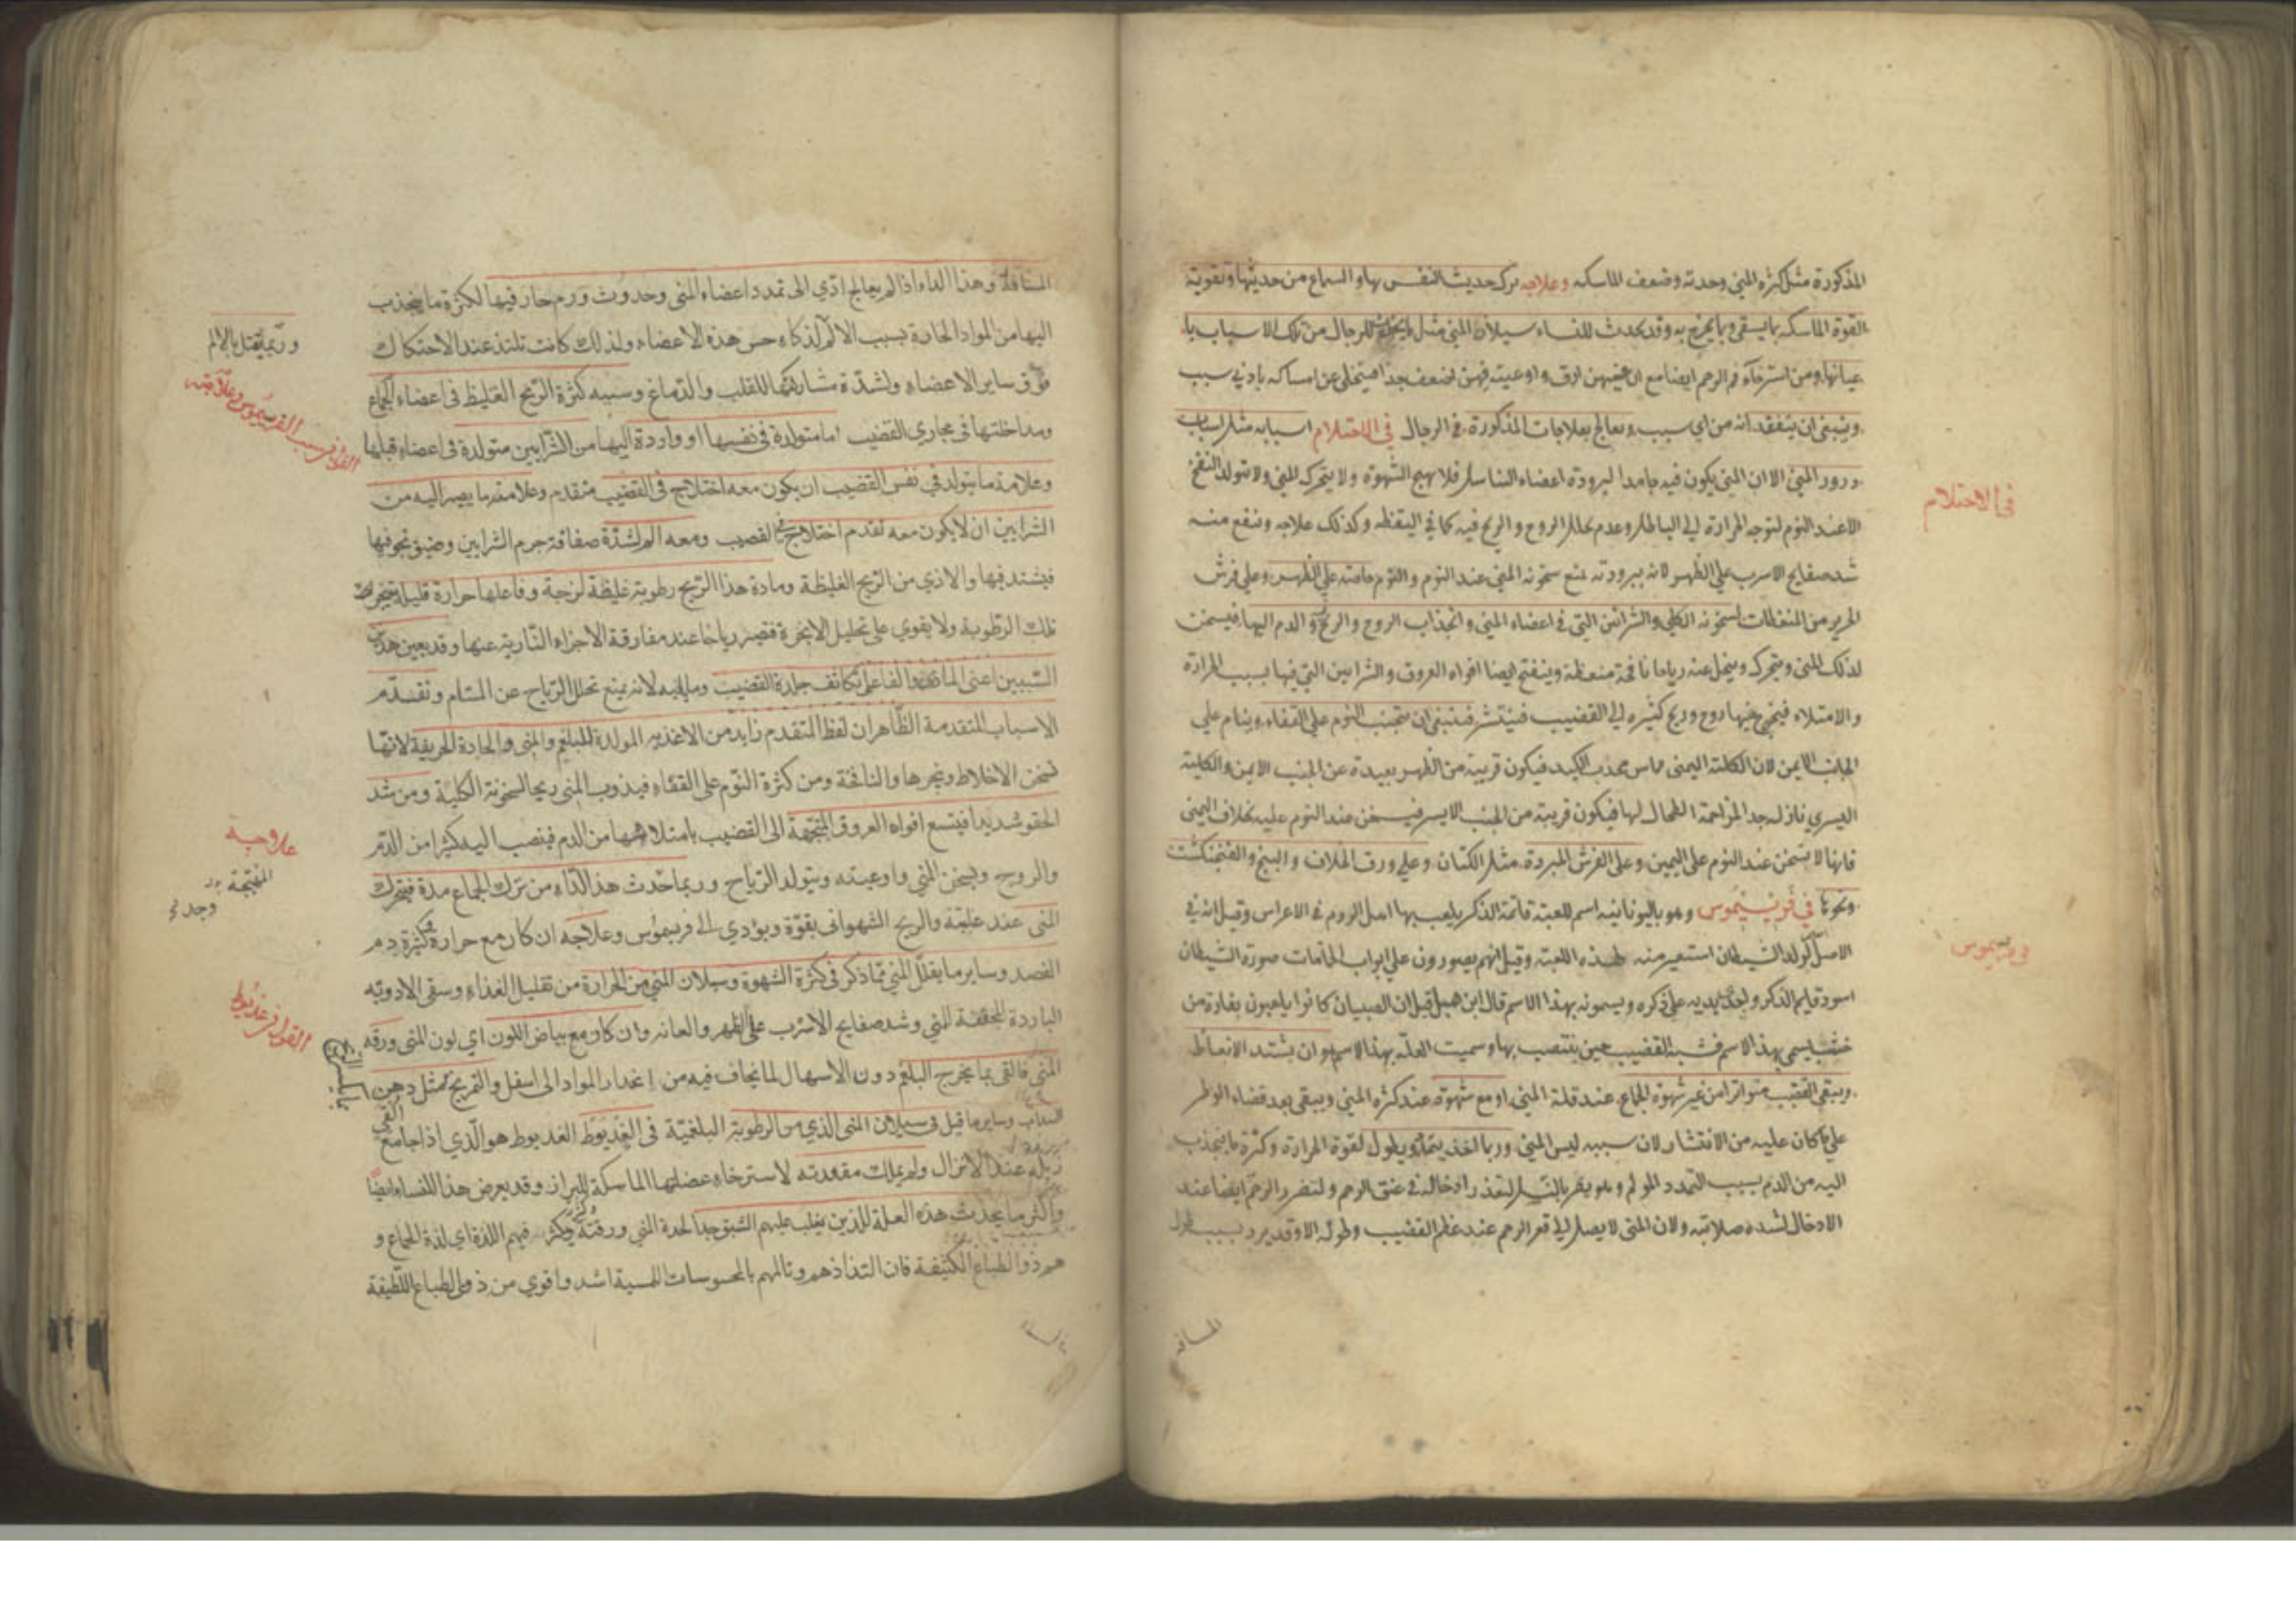 المذكورة مثل كثرة المني وحدته وضعف الماسكه وعلاجه ترك حديث النفس بها والسماع من حديثها وتقوية
القوة الماسكه بما يسقى وبما يمرخ به وقد يحدث للنساء سيلان المني مثل ما يحدث للرجال من تلك الاسباب با
عيانها ومن استرخاء فم الرحم ايضا مع ان منيهن ارق واوعيته فيهن اضعف جدا فيتخلى عن امساكه بادنى سبب
وينبغي ان يتفقد انه من اي سبب ويعالج بعلاجات المذكورة في الرجال في الاحتلام اسبابه مثل اسباب
درور المني الا ان المني يكون فيه جامدا لبرودة اعضاء التناسل فلا يهيج الشهوة ولا يتحرك المني ولا يتولد النفخ
الا عند النوم لتوجه الحرارة الى الباطن وعدم تحلل الروح والريح فيه كما في اليقظه وكذلك علاجه وينفع منه
شد صفايح الاسرب على الظهر لانه ببرودته يمنع سخونه المني عند النوم والنوم خاصته على الظهر وعلى فرش
الحرير من المنعظات لسخونه الكلى والشرائين التي في اعضاء المني وانجذاب الروح والريح و الدم اليها فيسخن
لذلك المني ويتحرك وينحل عنه رياحا نافخة منعظة وينفتح ايضا افواه العروق والشرايين التي فيها بسبب الحرارة
والامتلاء فيخرج عنها روح وريح كثيره الى القضيب فينتشر فينبغي ان يتجنب النوم على القفاء وينام على
الجانب الايمن لان الكلية اليمنى مماس محدب الكبد فيكون قريبة من الظهر بعيدة عن الجنب الايمن والكلية
اليسرى نازله جدا لمزاحمة الطحال لها فيكون قريبة من الجنب الايسر فيسخن عند النوم عليه بخلاف اليمنى
فانها لا تسخن عند النوم على اليمين وعلى الفرش المبردة مثل الكتان وعلى ورق الخلاف والبنج والفنجنكشت
ونحوها في فريسيموس وهو باليونانيه اسم للعبة قائمة الذكر يلعب بها اهل الروم في الاعراس وقيل انه في
الاصل كولد الشيطان استعير منه لهذه اللعبة وقيل انهم يصورون على ابواب الحمامات صورة الشيطان
اسود قايم الذكر واحدى يديه على ذكره ويسمونه بهذا الاسم قال ابن هبل قيل ان الصبيان كانوا يلعبون بفارة من
خشب يسمى بهذا الاسم فشبه القضيب حين ينتصب بها وسميت العلة بهذا الاسم هو ان يشتد الانعاظ
ويبقى القضيب متواترا من غير شهوة الجماع عند قلة المني او مع شهوة عند كثرة المني ويبقى بعد قضاء الوطر
على ما كان عليه من الانتشار لان سببه ليس المني وربما اخذ يتمدد ويطول لقوة الحرارة وكثرة ما ينجذب
اليه من الدم بسبب التمدد المولم وهو يضر بالنسل لتعذر ادخاله في عنق الرحم ولتضرر الرحم ايضا عند
الادخال لشدة صلابته ولان المنى لا يصل الى قعر الرحم عند عظم القضيب وطوله الا وقد يبرد بسبب طول
المسافه
في الاحتلام
في فريسيموس
المسافة وهذا الداء اذا لم يعالج ادى الى تمدد اعضاء المنى وحدوث ورم حار فيها لكثرة ما ينجذب
اليها من المواد الحارة بسبب الالم لذكاء حس هذه الاعضاء ولذلك كانت تلتذ عند الاحتكاك
فوق ساير الاعضاء ولشدة مشاركتها للقلب والدماغ وسببه كثرة الريح الغليظ في اعضاء الجماع
ومداخلتها في مجاري القضيب اما متولدة في نفسها او واردة اليها من الشرايين متولدة في اعضاء قبلها
وعلامة ما يتولد في نفس القضيب ان يكون معه اختلاج في القضيب متقدم وعلامة ما يصير اليه من
الشرايين ان لا يكون معه تقدم اختلاج في القضيب ومعه الم لشدة صفاقة جرم الشرايين وضيق تجوفيها
فيشتد فيها والاذى من الريح الغليظة ومادة هذا الريح رطوبة غليظة لزجة وفاعلها حرارة قليلة تبخر
تلك الرطوبة ولا يقوى على تحليل الابخرة فتصير رياحا عند مفارقة الاجزاء النارية عنها وقد يعين هذين
السببين اعني المادة والفاعل تكاثف جلدة القضيب وما يليه لانه يمنع تحلل الرياح عن المسام وتقدم
الاسباب المتقدمة الظاهر ان لفظ المتقدم زايد من الاغذيه المولدة للبلغم والمنى والحادة الحريفة لانها
تسخن الاخلاط وتبخرها والنافخة ومن كثرة النوم على القفاء فيذوب المنى ريحا لسخونة الكلية ومن شد
الحقو شديدا فيتسع افواه العروق المتجهة الى القضيب بامتلائها من الدم فينصب اليه كثيرا من الدم
والروح ويسخن المني واوعيته ويتولد الرياح وربما حدث هذا الداء من ترك الجماع مدة فيتحرك
المنى عند غلبته والريح الشهوانى بقوة ويؤدي الى فريسموس وعلاجه ان كان مع حرارة وكثرة دم
الفصد وساير ما يقلل المني مما ذكر في كثرة الشهوة وسيلان المني من الحرارة من تقليل الغذاء وسقى الادويه
الباردة المجففة للمني وشد صفايح الاسرب على الظهر والعانه وان كان مع بياض اللون اي لون المنى ورقه
المني فالقى بما يخرج البلغم دون الاسهال لما يخاف فيه من انحدار المواد الى اسفل والتمريخ بمثل دهن
السداب وساير ما قيل في سيلان المنى الذي من الرطوبة البلغمية في العذيوط العذيوط هو الذي اذا جامع القى
زبله عند الانزال ولم يملك مقعدته لاسترخاء عضلتها الماسكة للبراز وقد يعرض هذا للنساء ايضا
واكثر ما يحدث هذه العلة للذين يغلب عليهم الشبق جدا لحدة المني ورقته ويكثر فيهم اللذة اي لذة الجماع و
هم ذوا الطباع الكثيفة فان التذاذهم وتالمهم بالمحسوسات اللمسية اشد واقوى من ذوى الطباع اللطيفة
وربما يقتل بالالم
علاجه
المتجهة
القول في عذيوط